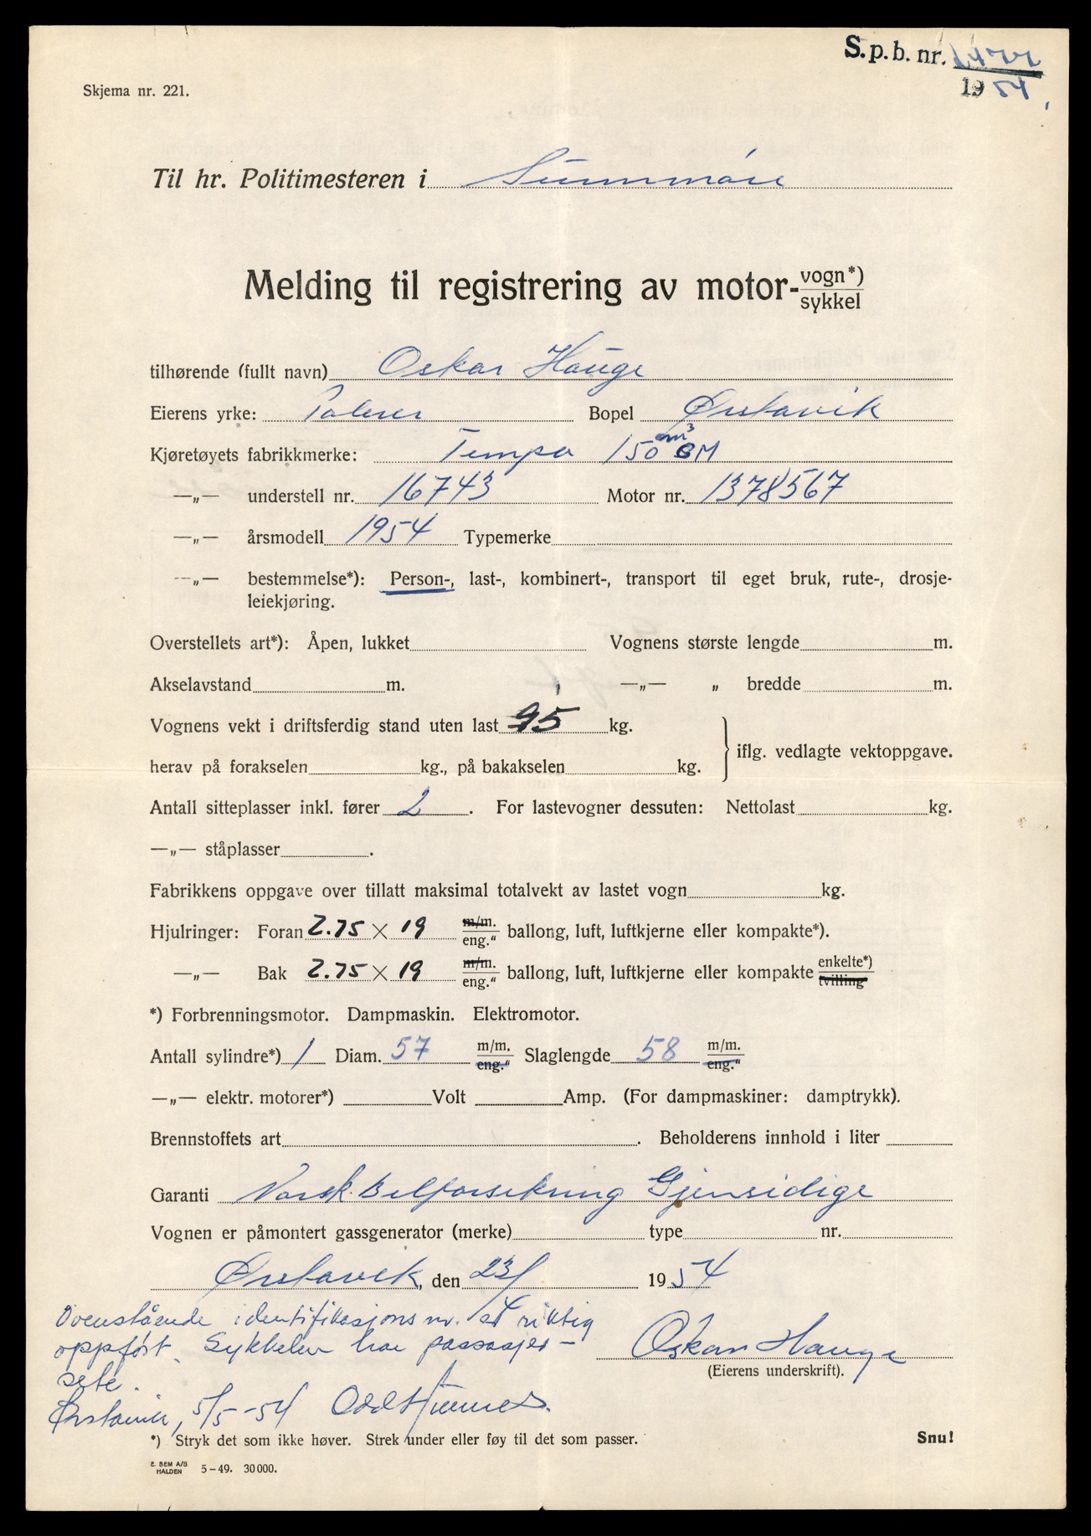 S.p.b. nr.
19 54
Skjema nr. 221.
Til hr. Politimesteren i Sunnmøre
Melding til registrering av motor-vogn*)
sykkel
tilhørende (fullt navn) Oskar Hauge
Eierens yrke: Bopel Ørstavik
Kjøretøyets fabrikkmerke: Tempo 150 cm³ CM
—„— understell nr. 16743 Motor nr. 1378567
—„— årsmodell 1954 Typemerke
—„— bestemmelse*): Person-, last-, kombinert-, transport til eget bruk, rute-, drosje-
leiekjøring.
Overstellets art*): Åpen, lukket Vognens største lengde m.
Akselavstand m. —„— „ bredde m.
Vognens vekt i driftsferdig stand uten last 95 kg.
iflg. vedlagte vektoppgave.
herav på forakselen kg., på bakakselen kg.
Antall sitteplasser inkl. fører 2. For lastevogner dessuten: Nettolast kg.
—„— ståplasser.
Fabrikkens oppgave over tillatt maksimal totalvekt av lastet vogn kg.
Hjulringer: Foran 2.75 × 19 m/m. eng." ballong, luft, luftkjerne eller kompakte*).
—„— Bak 2.75 × 19 m/m. eng." ballong, luft, luftkjerne eller kompakte enkelte*) tvilling
*) Forbrenningsmotor. Dampmaskin. Elektromotor.
Antall sylindre*) 1 Diam. 57 m/m. eng." Slaglengde 58 m/m. eng."
—„— elektr. motorer*) Volt Amp. (For dampmaskiner: damptrykk).
Brennstoffets art. Beholderens innhold i liter
Garanti Norsk Bilforsikring Gjensidige
Vognen er påmontert gassgenerator (merke) type nr.
Ørstavik, den 23/4 1954
Ovenstående identifikasjons nr. er riktig
oppført. Sykkelen har passasjer-
sete.
Oskar Hauge
(Eierens underskrift).
Ørstavik, 5/5-54
*) Stryk det som ikke høver. Strek under eller føy til det som passer.
Snu!
E. SEM A/S
HALDEN
5-49. 30000.